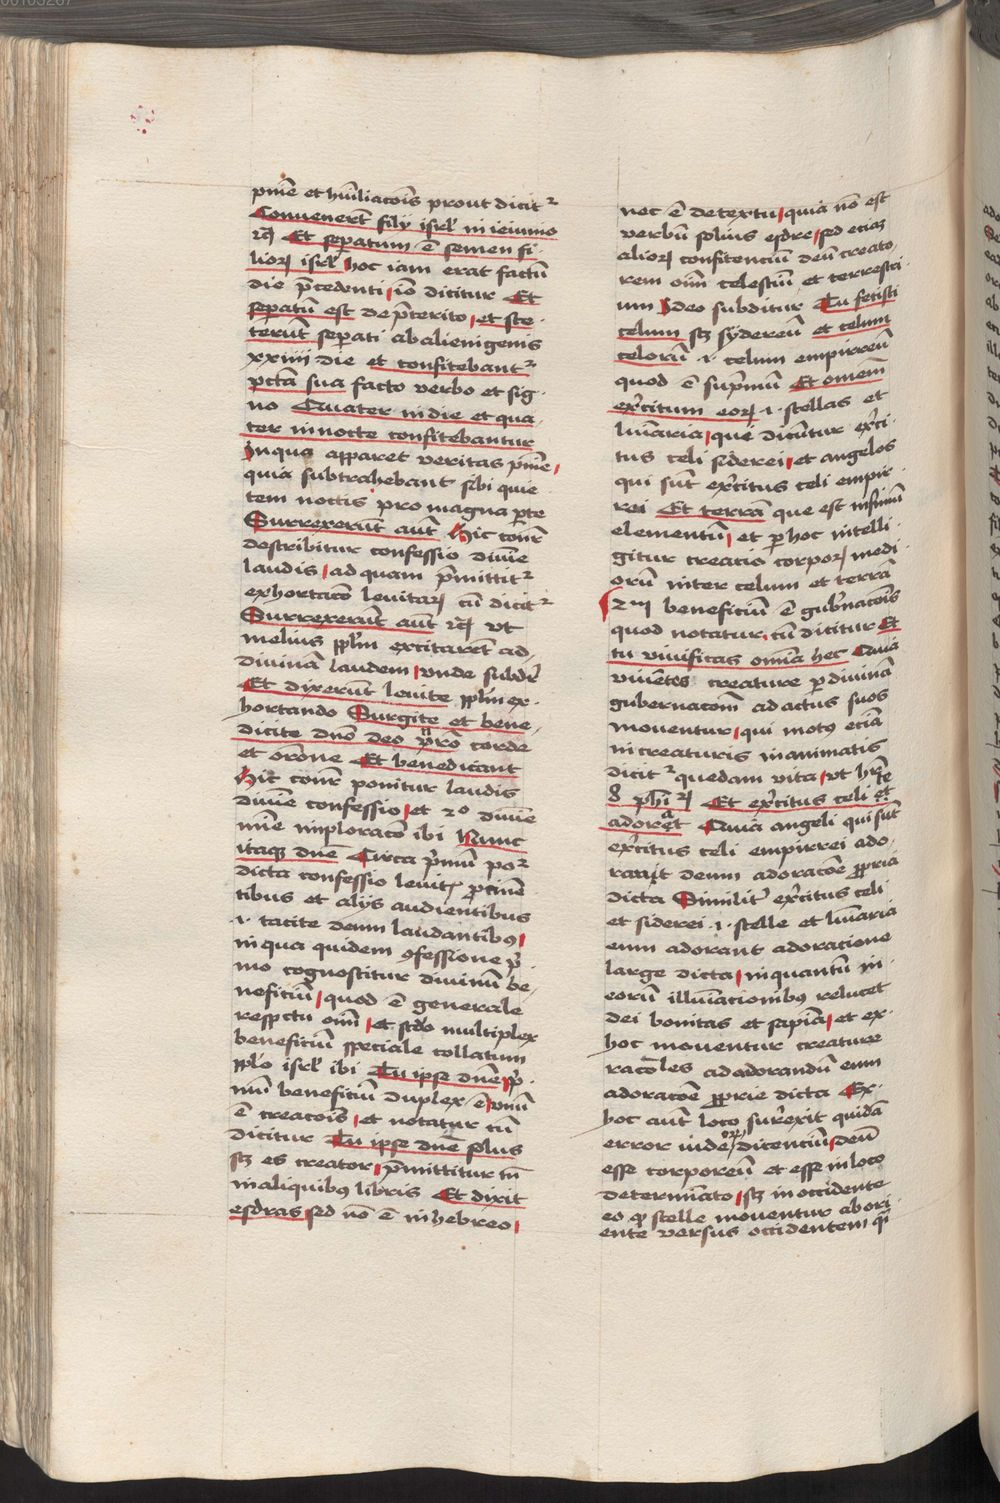 pnīe et hūiliacōis prout dicitꝰ
Convenerēt filij isrl' in ieiunio
rc̄ꝫ Et sepatum ē semen fi
lioꝝ isrl' hoc iam erat factū
die p̄cedenti io dicitur Et
sepatū est de p̄terito et ste
terūt sepati ab alienigenis
xxiiii die et confitebant'
pctā sua facto verbo et sig
no Quater in die et qua
ter in nocte confitebantur
In qua apparet veritas pn̄ie
quia subtrahebant sibi quie
tem noctis pro magna pte
Surrexerūt aūt Hic cōnr
describitur confessio diuīe
laudis ad quam p̄mittit'
exhortacō levitaꝝ cū dicit'
Surrexerūt aūt rc̄ꝫ vt
melius pplm̄ excitarēt ad
diuinā laudem vnde subdr̄
Et dixerūt leuite pplm̄ ex
hortando Surgite et bene
dicite dn̄o deo vr̄o corde
et orōne Et benedicant
Hic cōnr ponitur laudis
diuīe confessio et 2o diuīe
mīe imploracō ibi Nunc
itaqꝫ dn̄e Circa p̄mū po'
dicta confessio leuitꝝ ꝑtinē
tibus et alijs audientibus
.i. tacite deum laudantibꝰ
in qua quidem ꝯfessione p̄
mo cognoscitur diuinū be
neficiū quod ē generale
respectu oīm et scdo multiplex
beneficiū speciale collatum
pplo isrl' ibi Tu ipse dn̄e p̄
mū beneficiū duplex ē vnū
ē creacōis et notatur cū
dicitur Tu ipse dn̄e solus
scꝫ es creator p̄mittitur tn̄
in aliquibꝰ libris Et dixit
esdras sed nō ē in hebreo
nec ē de textu quia nō est
verbū solius esdre sed eciaꝫ
alioꝝ confitenciū deū creato
rem oīm celestiū et terrestri
um Ideo subditur Tu fecisti
celum scꝫ sydereū et celum
celorū .i. celum empirreū
quod ē sup̄mū Et omēm
exr̄citum eoꝝ .i. stellas et
luīaria que dicūtur exr̄ci
tus celi siderei et angelos
qui sūt exr̄citus celi empir
rei Et terrā que est infimū
elementū et ꝑ hoc intelli
gitur creacio corpoꝝ medi
orū inter celum et terrā
2m beneficiū ē gub'nacōis
quod notatur cū dicitur Et
tu viuificas omīa hec Quia
viuētes creature ꝑ diuinā
gubernacōm ad actus suos
mouentur qui motꝰ eciā
in creaturis inanimatis
dicit' quedam vita vt hr̄
8 phi'ꝝ Et exr̄citus celi te
adorat Quia angeli qui sūt
exr̄citus celi empirrei ado
rant deum adoracōe ꝓpria
dicta Similit' exr̄citus celi
et siderei .i. stelle et luīaria
eum adorant adoracione
large dicta inquantū in
eorū illuīacionibꝰ relucet
dei bonitas et sapīa et ex
hoc mouentur creature
racōles ad adorandū eum
adoracōe ꝓprie dicta Ex
hoc aūt loco surrexit quidā
error iudeoꝝ dicenciū deū
esse corporeū et esse in loco
determīato scꝫ in occidente
eo qꝫ stelle mouentur ab ori
ente versus occidentem q̄i